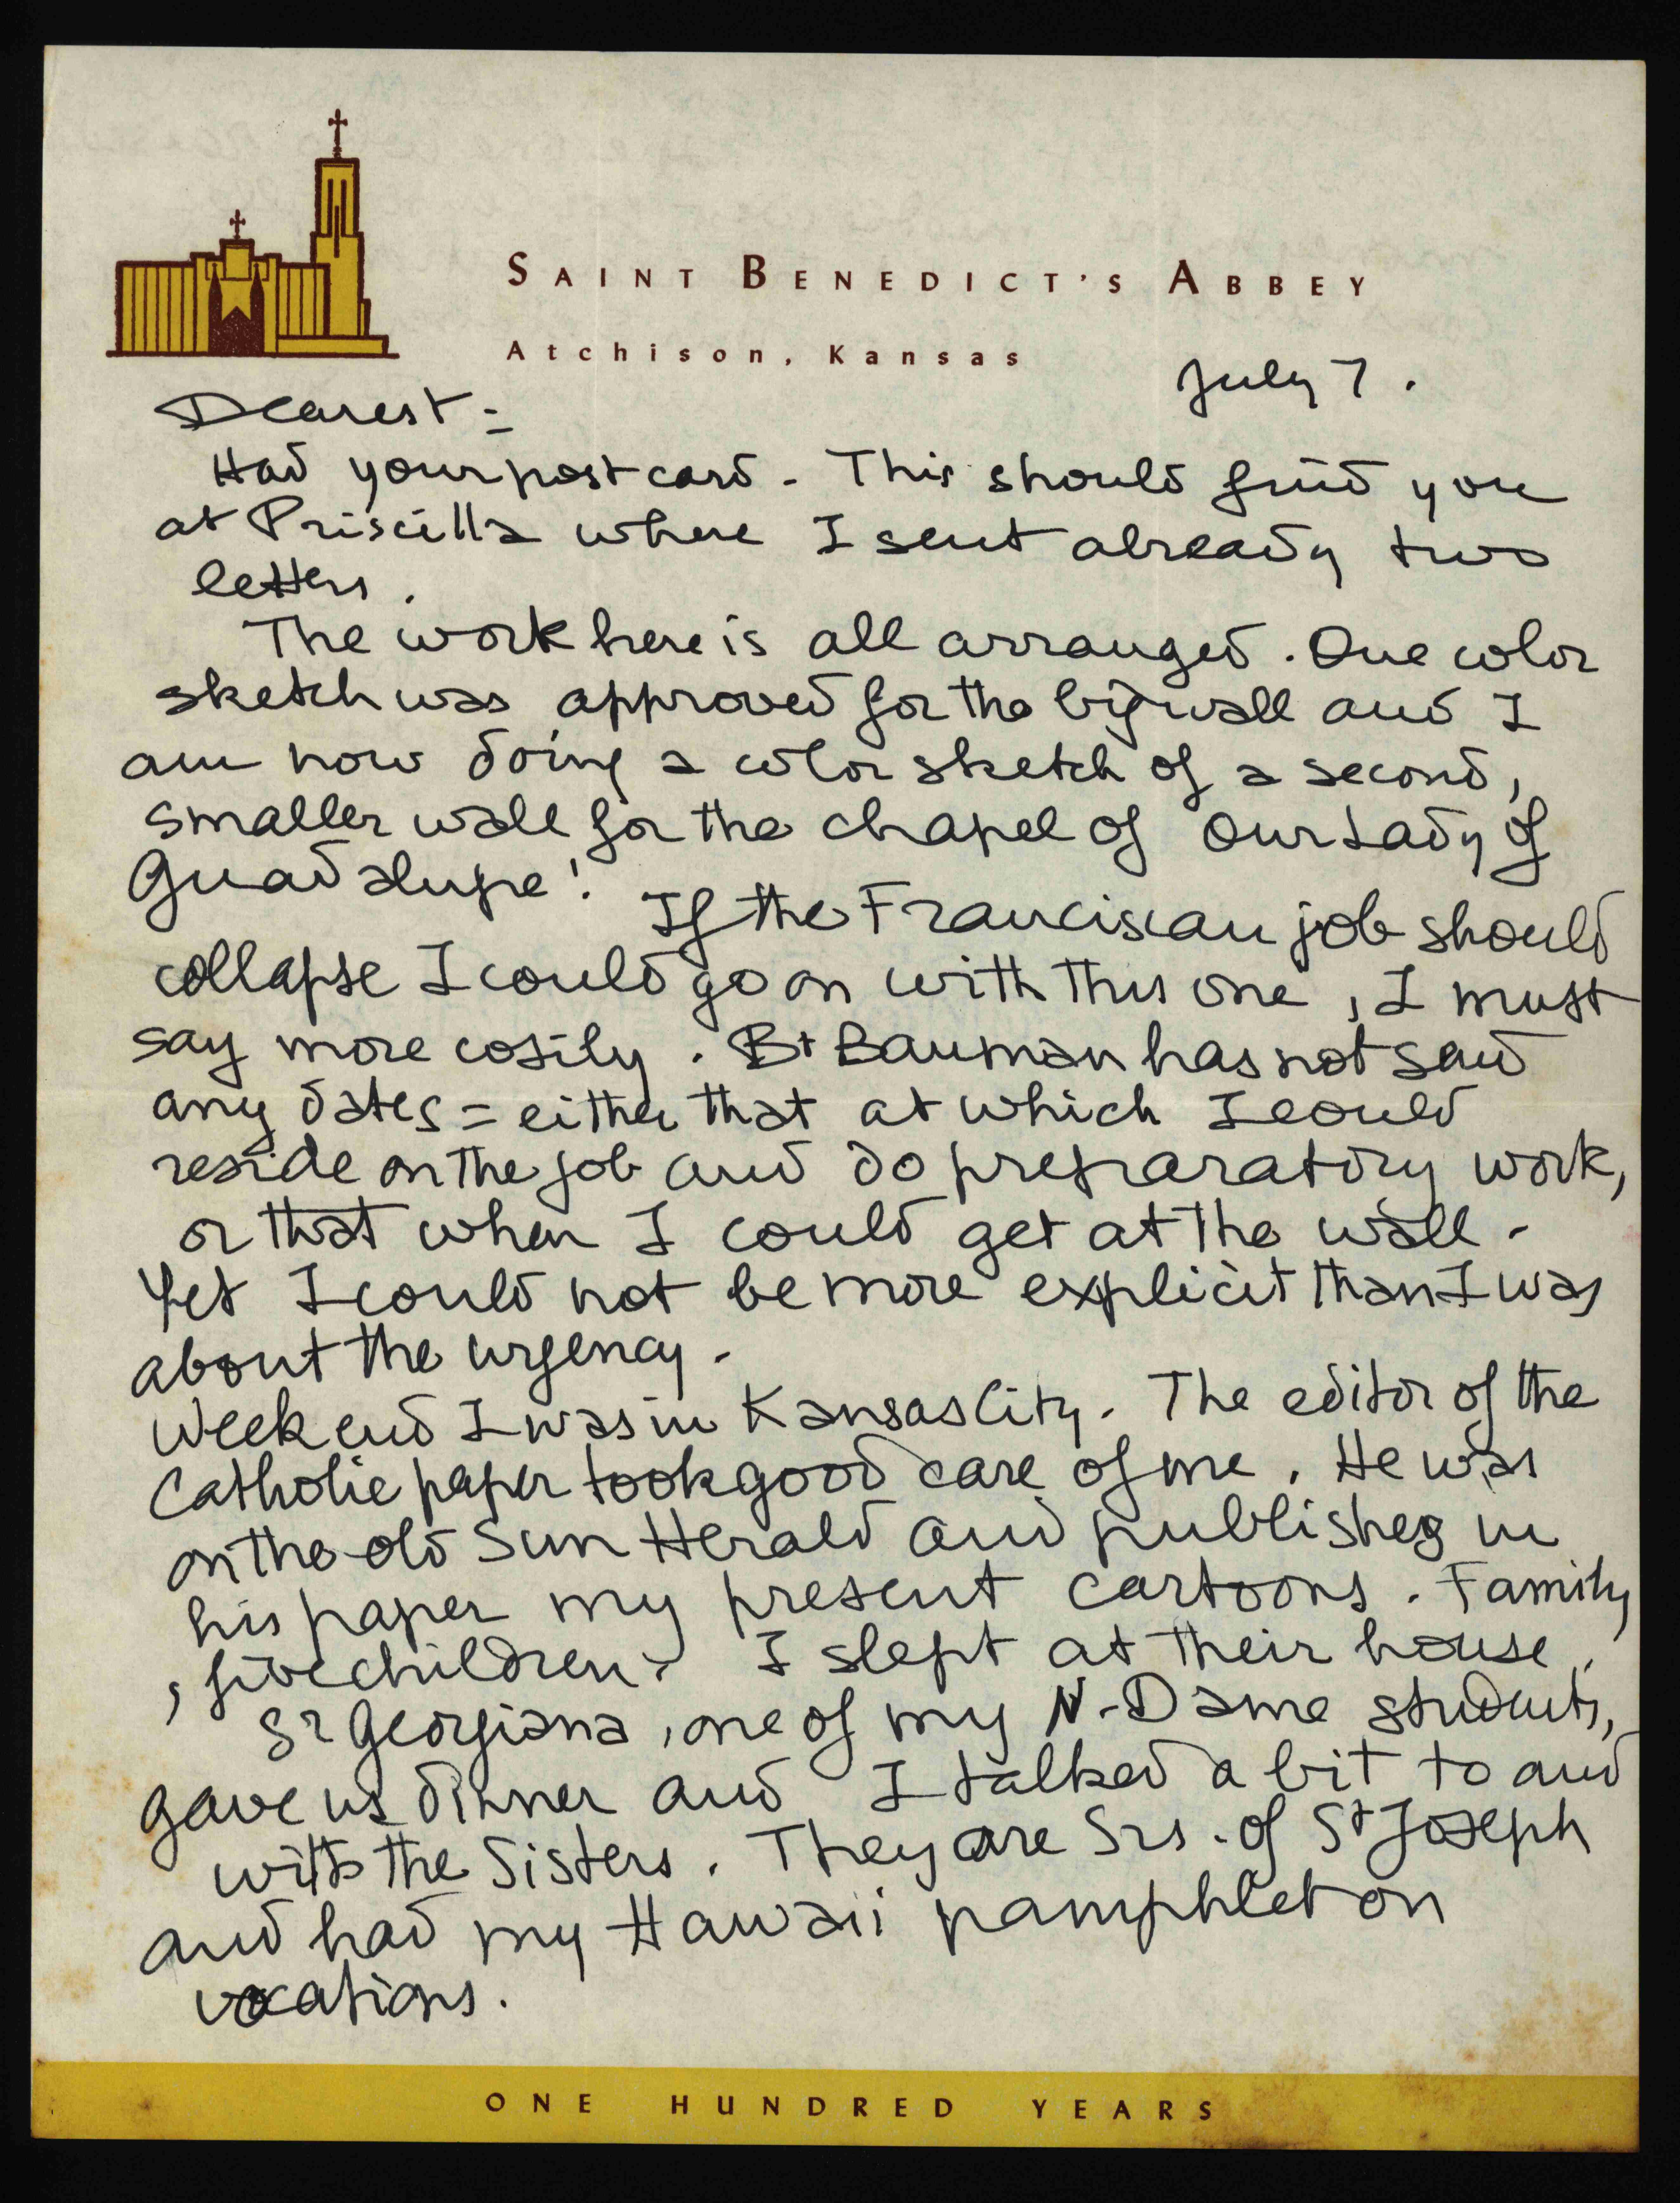 SAINT BENEDICT'S ABBEY
Atchison, Kansas
July 7.
Dearest =
Had your post card - This should find you
at Priscilla where I sent already two
letters.
The work here is all arranged. One color
sketch was approved for the big wall and I
am now doing a color sketch of a second,
smaller wall for the chapel of Our Lady of
Guadalupe! If the Franciscan job should
collapse I could go on with this one, I must
say more cosily. Br Bauman has not said
any dates = either that at which I could
reside on the job and do preparatory work,
or that when I could get at the wall -
Yet I could not be more explicit than I was
about the urgency -
Week end I was in Kansas City. The editor of the
Catholic paper took good care of me. He was
on the old Sun Herald and publishes in
his paper my present cartoons. Family
, five children. I slept at their house.
Sr Georgiana, one of my N-Dame students,
gave us dinner and I talked a bit to and
with the Sisters. They are Srs. of St Joseph
and had my Hawaii pamphlet on
vocations.
ONE HUNDRED YEARS